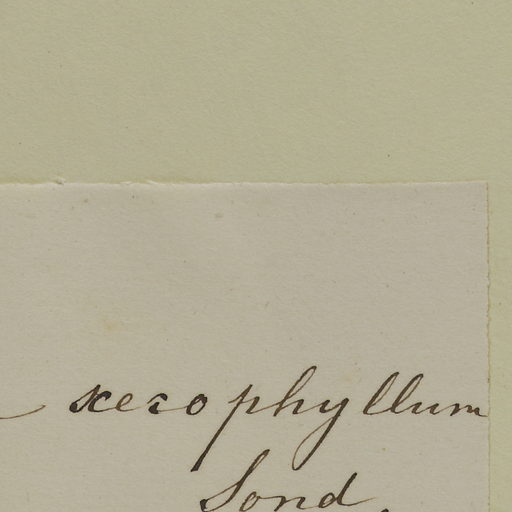 xerophyllum
Sond.